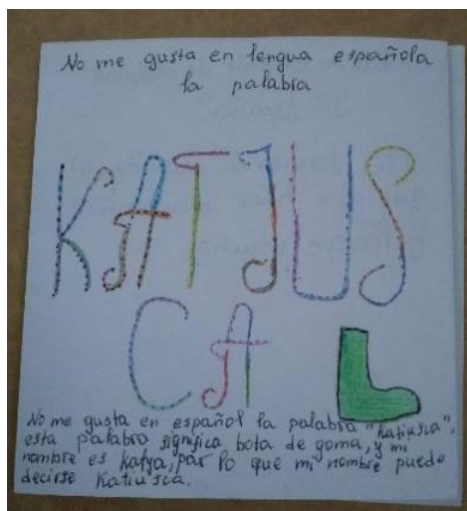 No me gusta en lengua española
la palabra
KATJUS
CA
No me gusta en español la palabra "Katiusca",
esta palabra significa bota de goma, y mi
nombre es Katya, par lo que mi nombre puedo
decirse Katiusca.